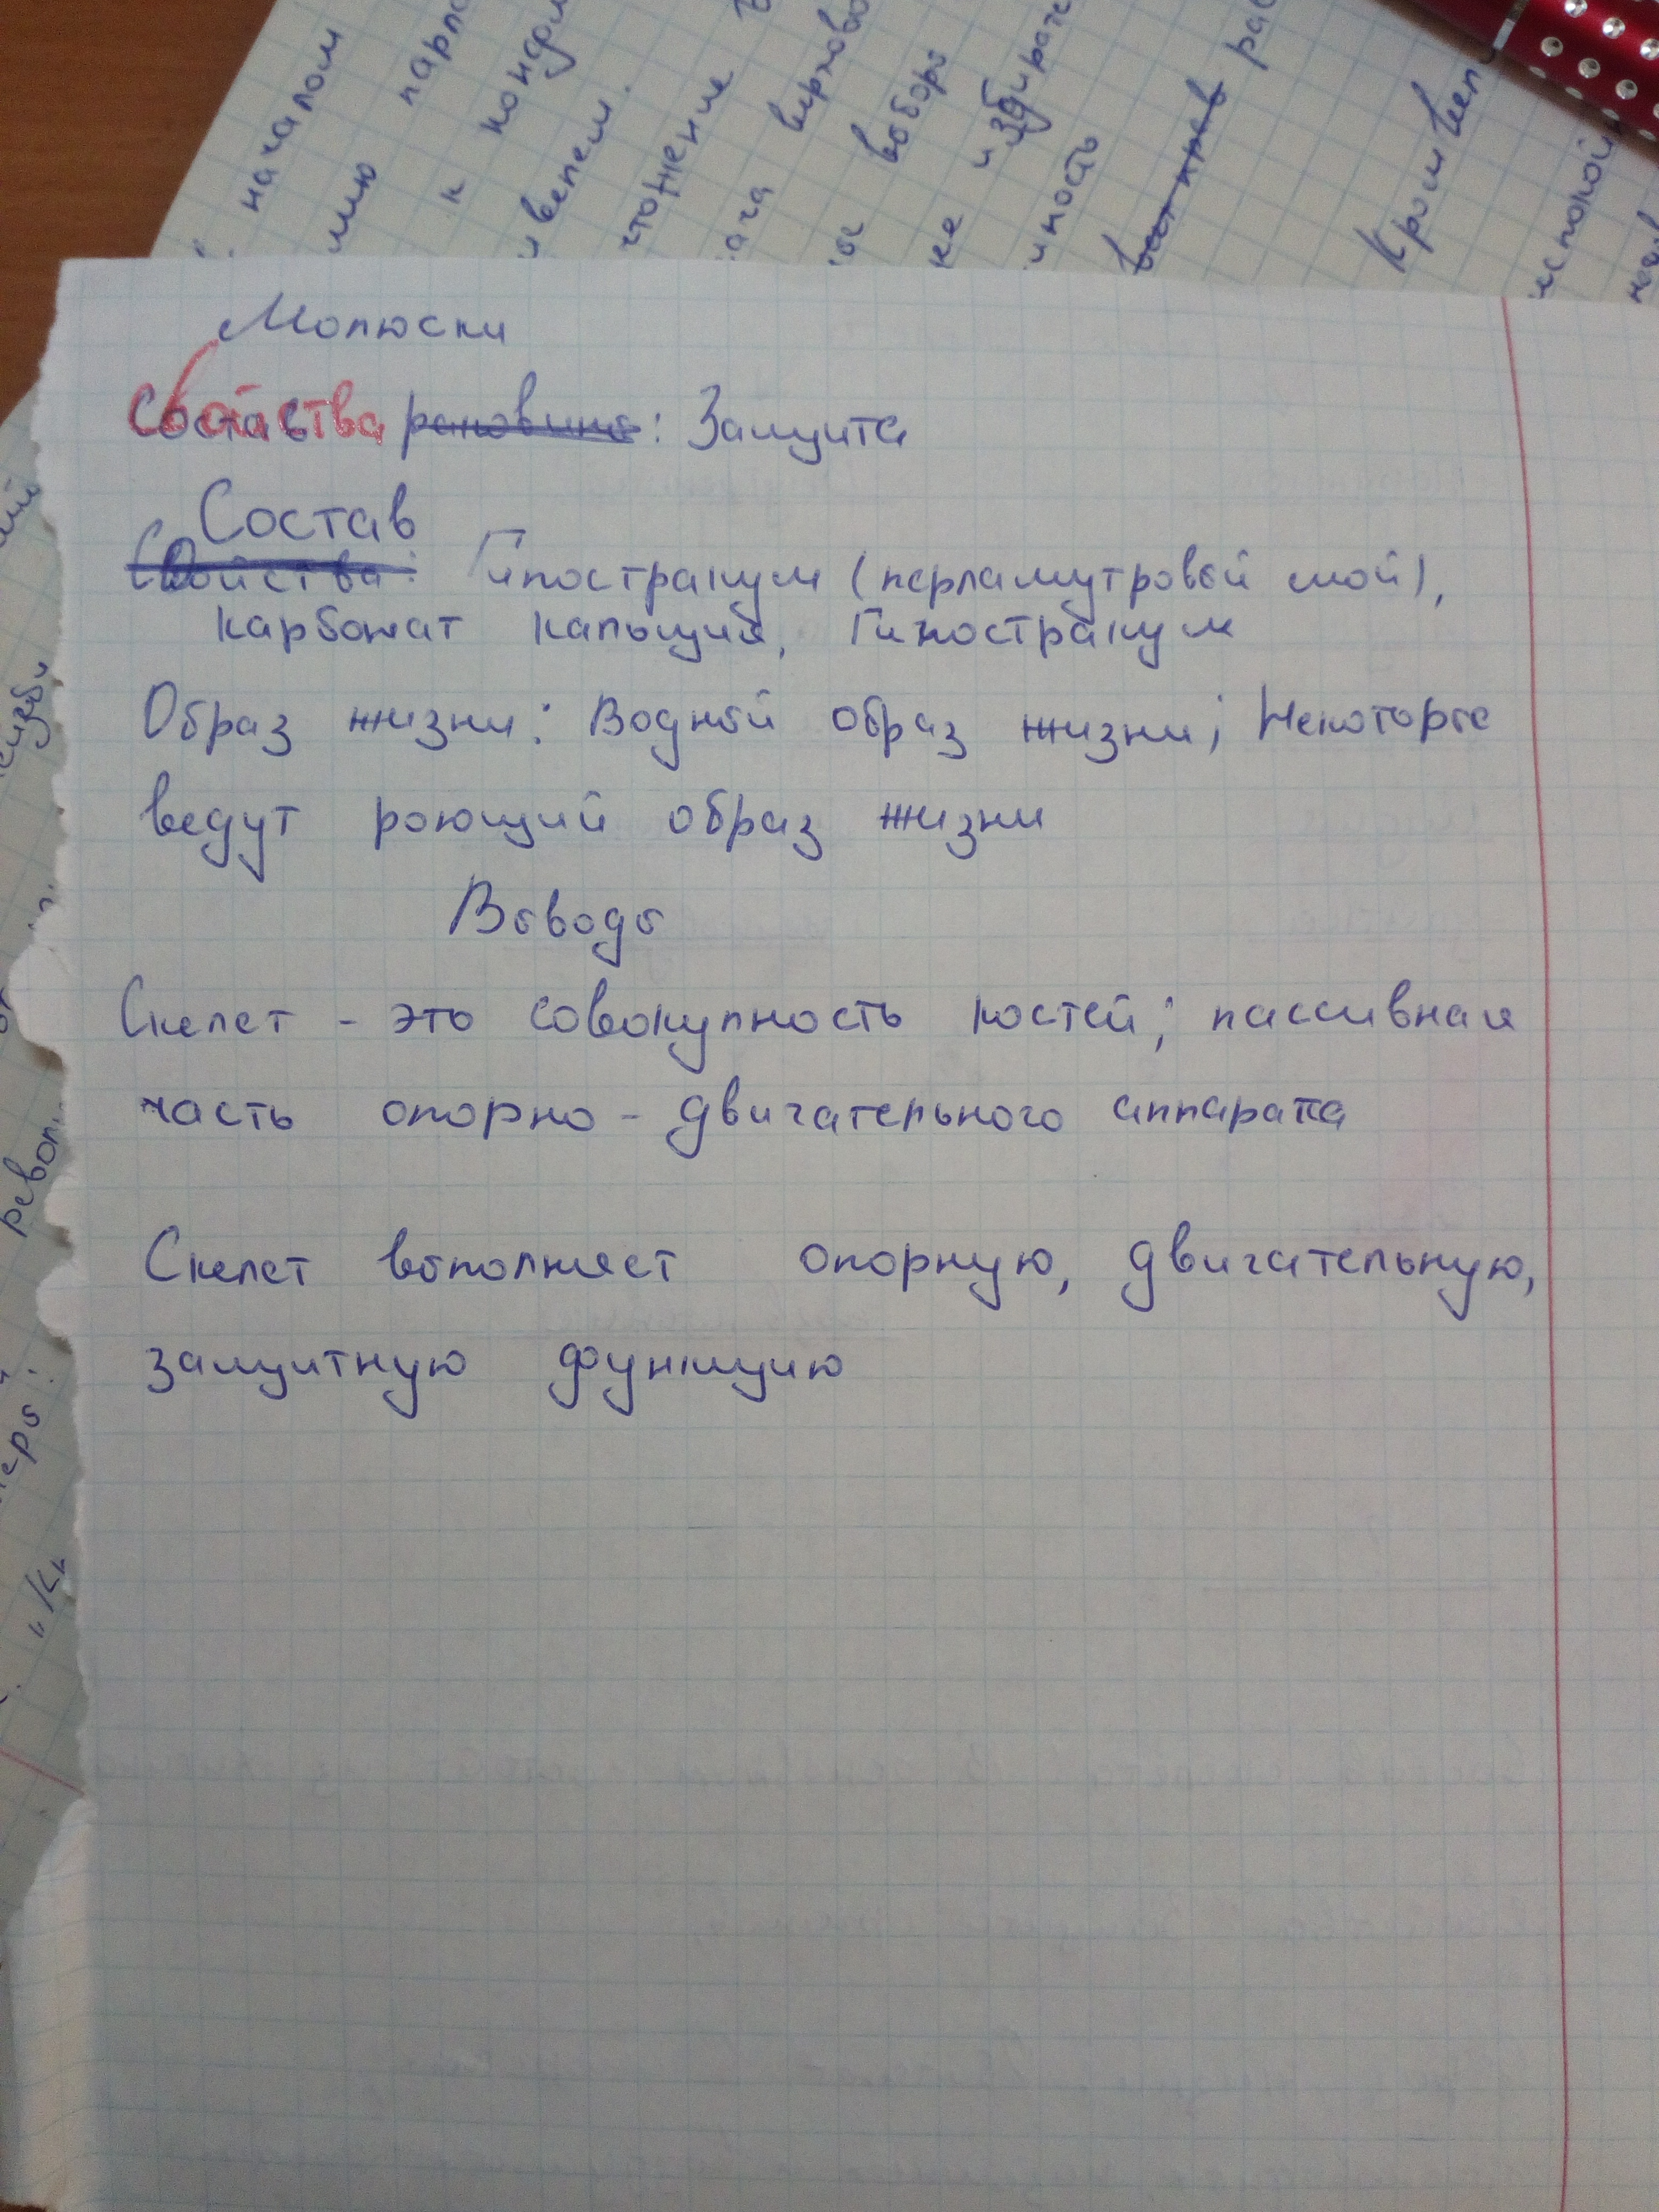 началом
к
вепем.
выборы
Кромвель
Молюски
Свойства раковины: Защита
Состав
Свойства: Гипостракум (перламутровый слой),
карбонат кальция, Гипостракум
Образ жизни: Водный образ жизни; Некоторые
ведут роющий образ жизни
Выводы
Скелет - это совокупность костей; пассивная
часть опорно-двигательного аппарата
Скелет выполняет опорную, двигательную,
защитную функцию